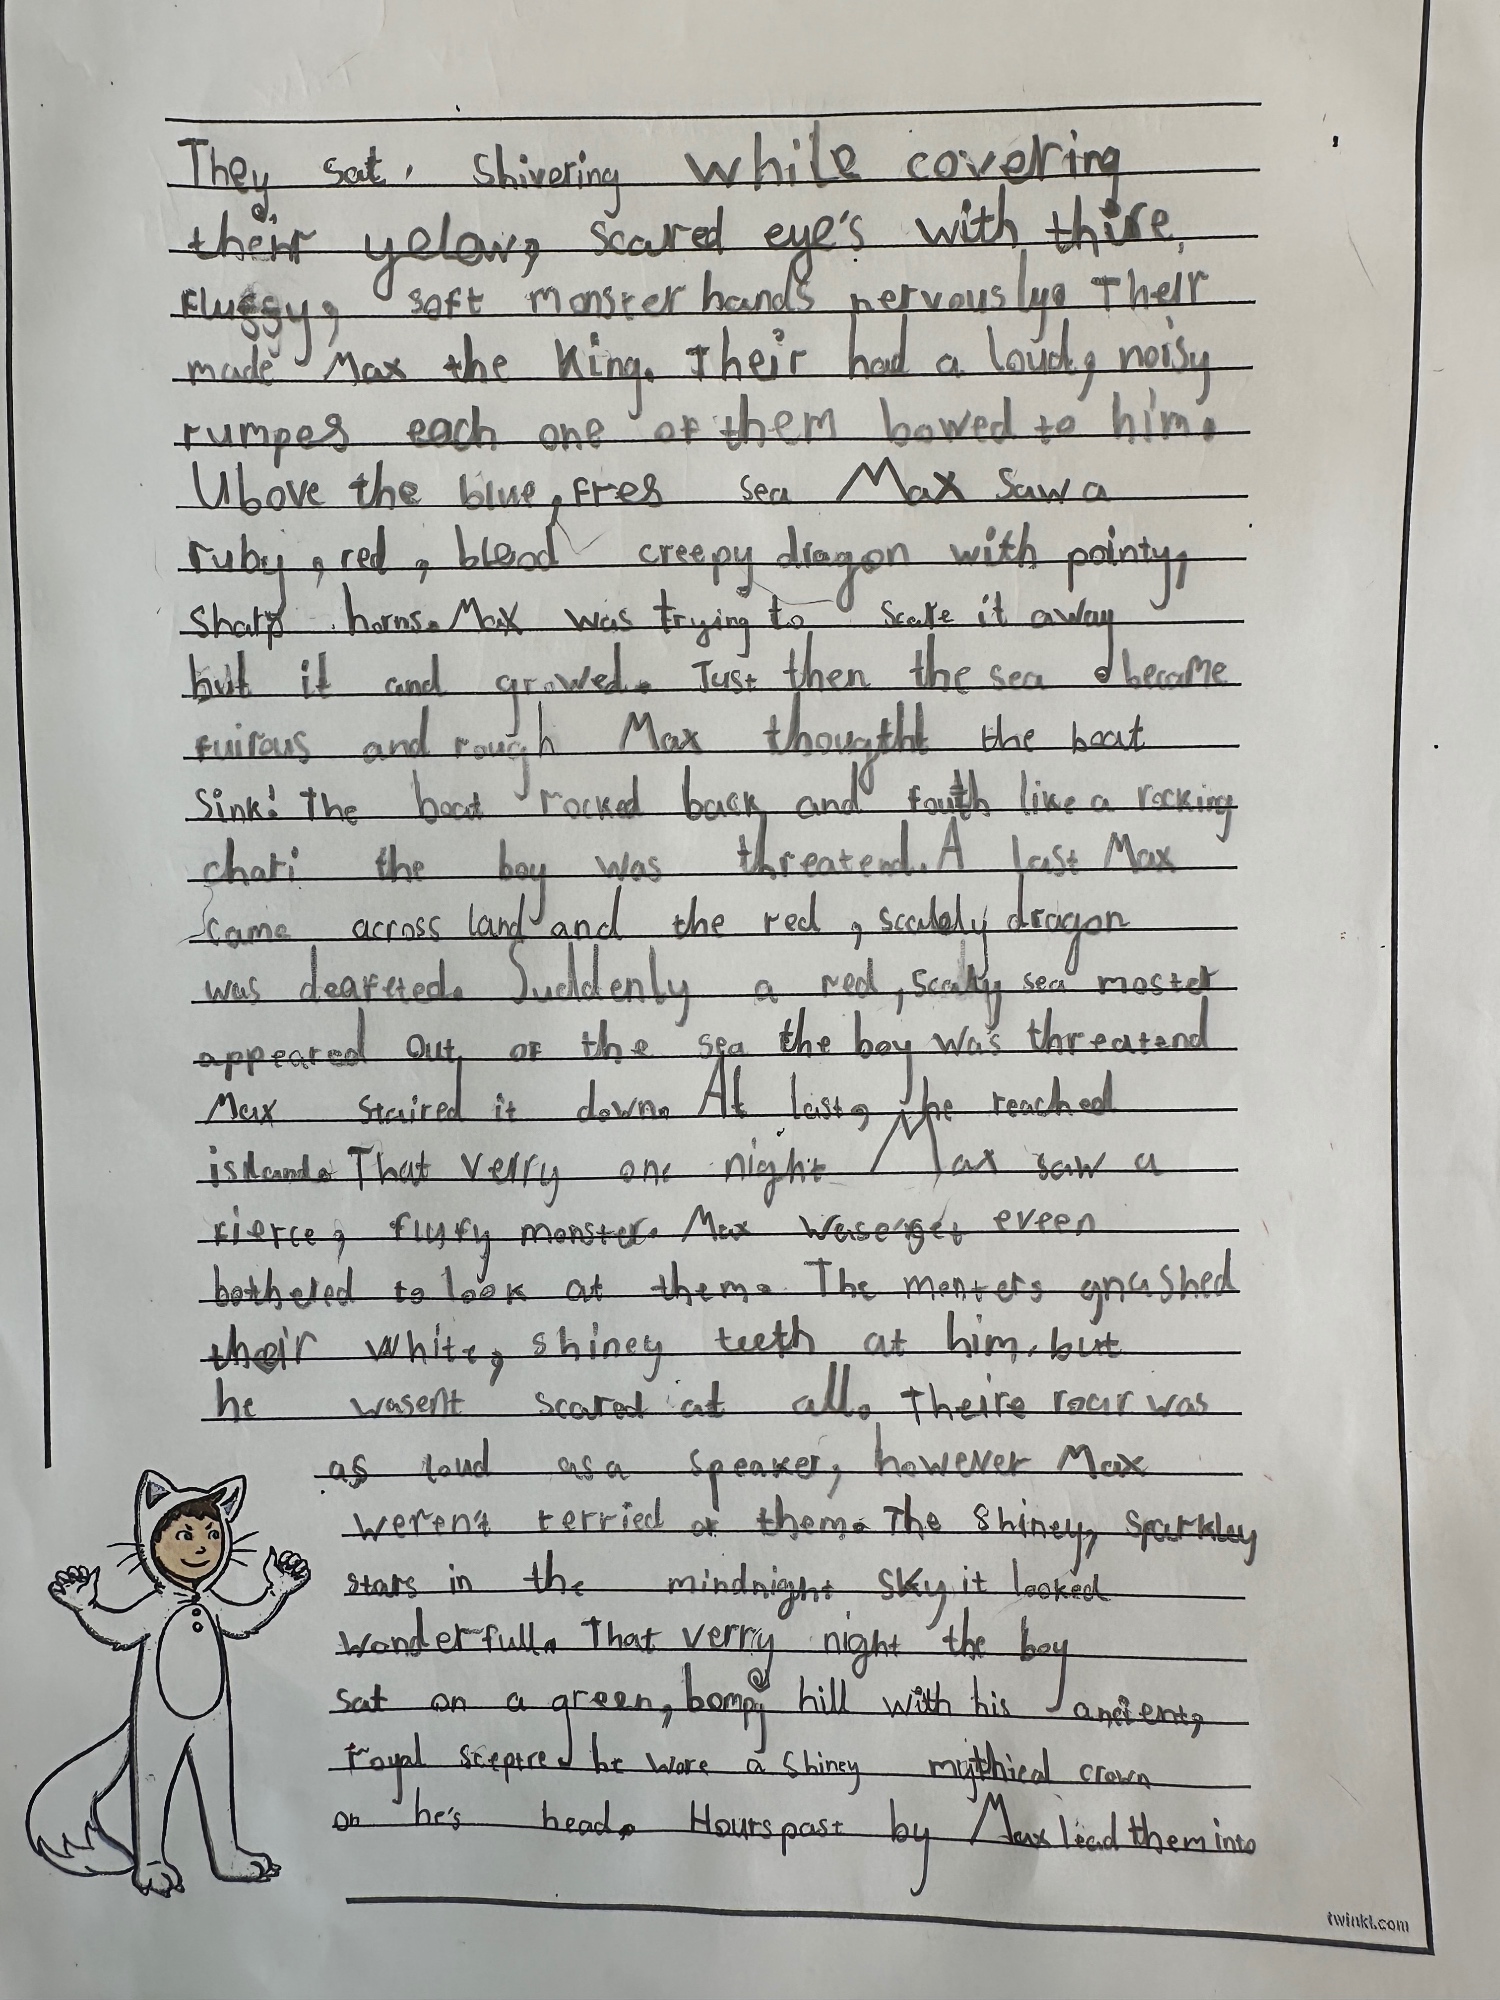 They sat, shivering while covering
their yelow, scared eye's with thire
fluggy, soft monster hands nervously. Their
made Max the King. Their had a loud, noisy
rumpes each one of them bowed to him.
Ubove the blue, fres sea Max saw a
ruby, red, blood creepy dragon with pointy,
sharp horns. Max was trying to scare it away
but it and growed. Just then the sea became
fuirous and rough Max thougtht the boat
sink! The boat rocked back and fouth like a rocking
chari the boy was threatend. A last Max
came across land and the red, scalely dragon
was deafeted. Suddenly a red, scaly sea moster
appeared out of the sea the boy was threatend
Max staired it down. At last, he reached
island. That verry one night Max saw a
fierce, flufy monster. Max eveen
bothered to look at them. The monters gnashed
their white, shiney teeth at him, but
he wasent scared at all. Theire roar was
as loud as a speaker, however Max
weren't terried of them. The shiney, sparkley
stars in the mindnight sky it looked
wonderfull. That verry night the boy
sat on a green, bompy hill with his ancient,
royal sceptre. he wore a shiney mythical crown
on he's head. Hours past by Max lead them into
twinkl.com